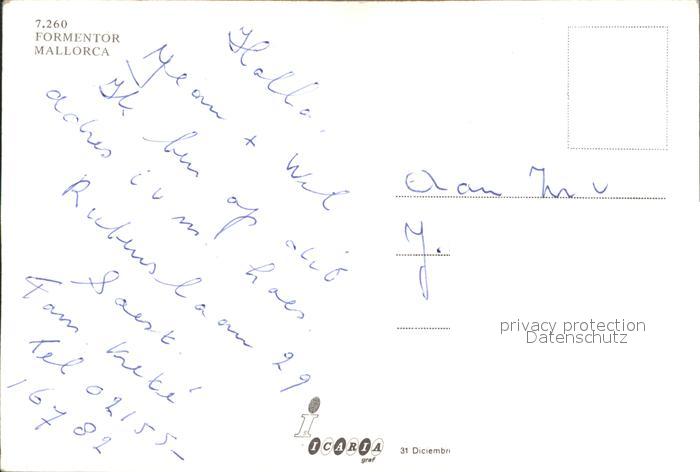 7.260
FORMENTOR
MALLORCA
Hallo,
Jean + Wil
Ik ben op dit
adres i v m haar
Rubenslaan 29
Soest.
Fam
Tel 02155-
16782
Aan
J.
privacy protection
Datenschutz
ICARIA
graf
31 Diciembr